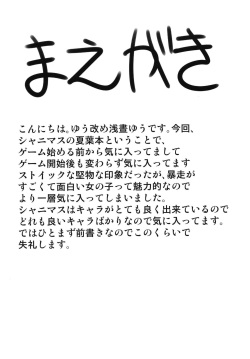 まえがき
こんにちは。ゆう改め浅葱ゆうです。今回、
シャニマスの夏葉本ということで、
ゲーム始める前から気に入ってまして
ゲーム開始後も変わらず気に入ってます
ストイックな堅物な印象だったが、暴走が
すごくて面白い女の子って魅力的なので
より一層気に入ってしまいました。
シャニマスはキャラがとても良く出来ているので
どれも良いキャラばかりなので気に入ってます。
ではひとまず前書きなのでこのくらいで
失礼します。